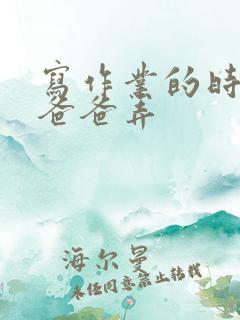 寫作業的時
爸爸弄
海尔曼
未经同意禁止转载